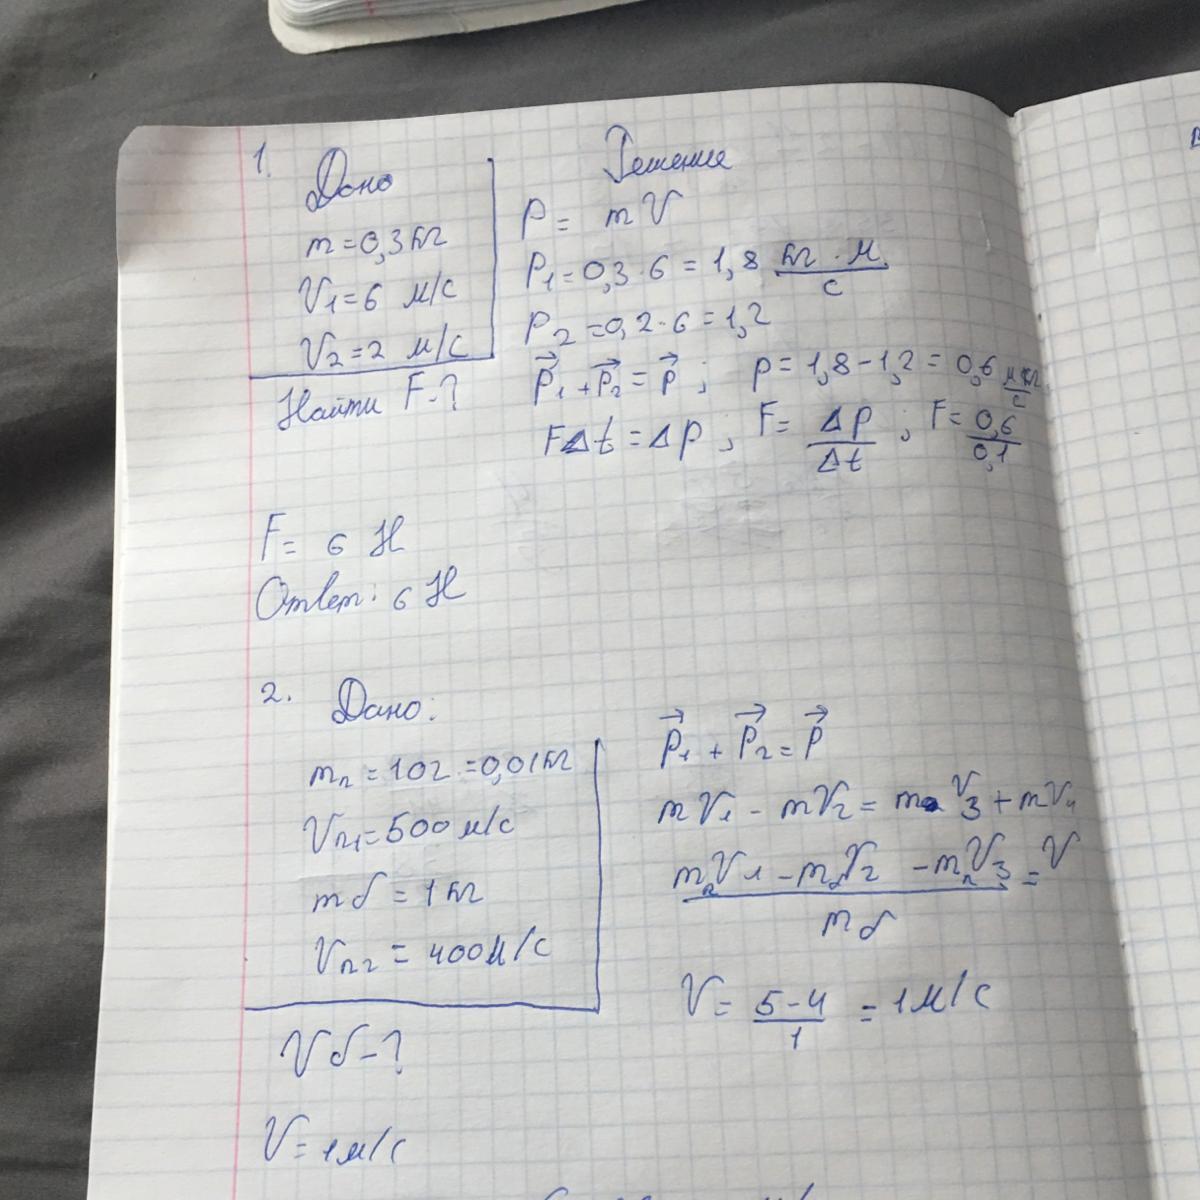 1.
Дано
m = 0,3 кг
V₁ = 6 м/с
V₂ = 2 м/с
Найти F - ?
Решение
P = mV
P₁ = 0,3 · 6 = 1,8 кг · м / с
P₂ = 0,2 · 6 = 1,2
P⃗₁ + P⃗₂ = P⃗ ; p = 1,8 - 1,2 = 0,6 м кг / с
FΔt = Δp ; F = Δp / Δt ; F = 0,6 / 0,1
F = 6 Н
Ответ: 6 Н
2. Дано:
mп = 10 г = 0,01 кг
Vп1 = 500 м/с
mб = 1 кг
Vп2 = 400 м/с
Vб - ?
P⃗₁ + P⃗₂ = P⃗
mV₁ - mV₂ = m V₃ + mV₄
mпV₁ - mбV₂ - mпV₃ / mб = V
V = 5 - 4 / 1 = 1 м/с
V = 1 м/с